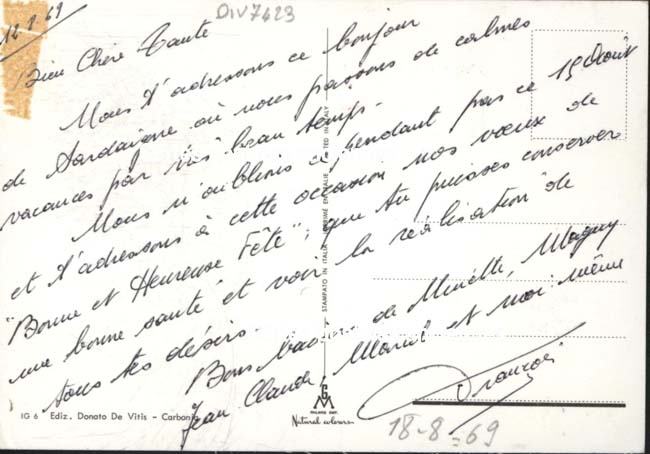 12-8-69
DIV7423
Bien Chère Tante
Nous t'adressons ce bonjour
de Sardaigne où nous passons de calmes
vacances par très beau temps.
Nous n'oublions cependant pas ce 15 Août
et t'adressons à cette occasion nos vœux de
"Bonne et Heureuse Fête", que tu puisses conserver
une bonne santé et voir la réalisation de
tous tes désirs.
Bons baisers de Minette, Maguy
Jean Claude, Marcel et moi même
François
STAMPATO IN ITALIA
IG 6 Ediz. Donato De Vitis - Carbonia
GM
Natural colours
18-8-69